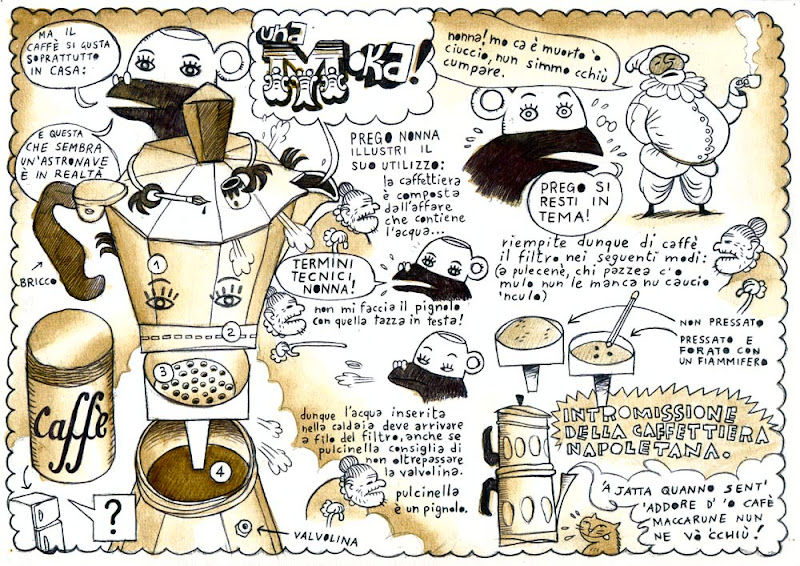 MA, IL
CAFFÈ SI GUSTA
SOPRATTUTTO
IN CASA:
E QUESTA
CHE SEMBRA
UN'ASTRONAVE
È IN REALTÀ
una
MOKA!
nonna! mo ca è muorto 'o
ciuccio, nun simmo cchiù
cumpare.
PREGO NONNA
ILLUSTRI IL
SUO UTILIZZO:
la caffettiera
è composta
dall'affare
che contiene
l'acqua...
PREGO SI
RESTI IN
TEMA!
TERMINI
TECNICI,
NONNA!
non mi faccia il pignolo
con quella tazza in testa!
riempite dunque di caffè
il filtro nei seguenti modi:
(a pulecenè, chi pazzea c'o
mulo nun le manca nu caucio
'nculo)
BRICCO
1
2
3
4
NON PRESSATO
PRESSATO E
FORATO CON
UN FIAMMIFERO
Caffè
dunque l'acqua inserita
nella caldaia deve arrivare
a filo del filtro, anche se
pulcinella consiglia di
non oltrepassare
la valvolina.
pulcinella
è un pignolo.
INTROMISSIONE
DELLA CAFFETTIERA
NAPOLETANA.
'A JATTA QUANNO SENT'
'ADDORE D' 'O CAFÈ
MACCARUNE NUN
NE VÒ CCHIÙ!
?
VALVOLINA